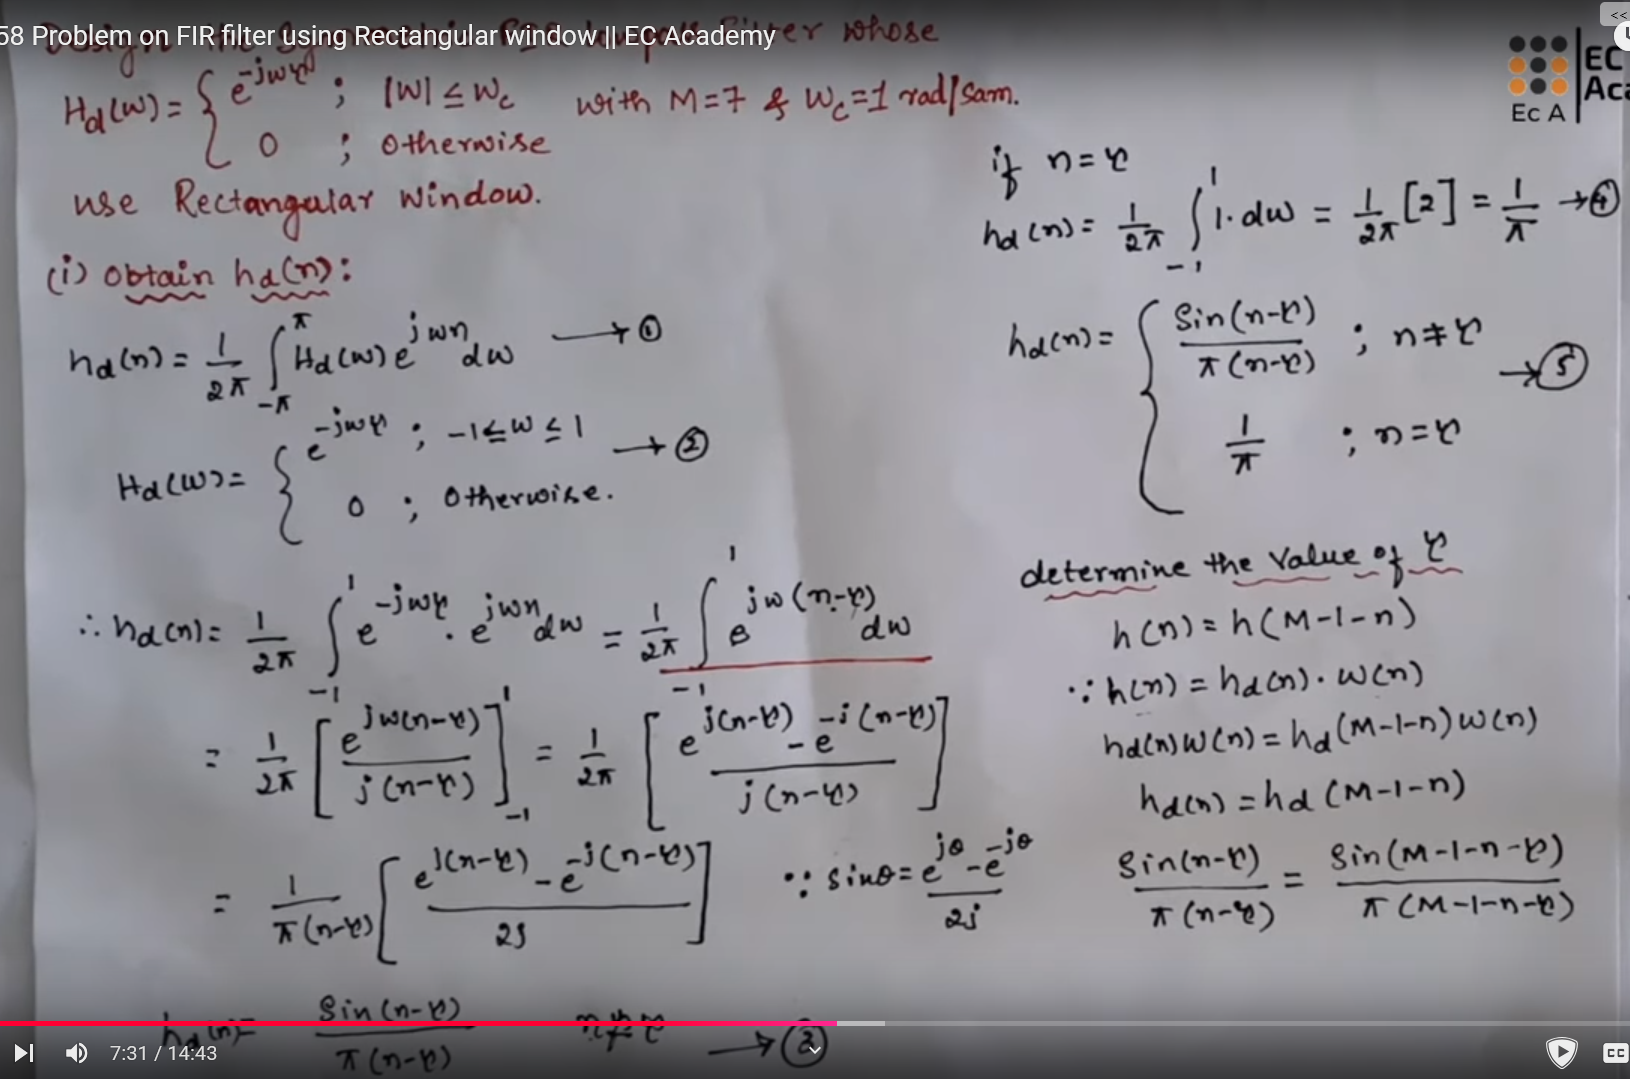 58 Problem on FIR filter using Rectangular window || EC Academy
whose
Hd(w) = { e^-jwτ ; |w| ≤ wc with M=7 & wc=1 rad/sam.
0 ; otherwise
use Rectangular window.
(i) obtain hd(n):
hd(n) = 1/2π ∫_-π^π Hd(w) e^jwn dw → ①
Hd(w) = { e^-jwτ ; -1 ≤ w ≤ 1 → ②
0 ; otherwise.
∴ hd(n) = 1/2π ∫_-1^1 e^-jwτ . e^jwn dw = 1/2π ∫_-1^1 e^jw(n-τ) dw
= 1/2π [ e^jw(n-τ) / j(n-τ) ]_-1^1 = 1/2π [ e^j(n-τ) - e^-j(n-τ) / j(n-τ) ]
= 1/π(n-τ) [ e^j(n-τ) - e^-j(n-τ) / 2j ] ∵ sinθ = e^jθ - e^-jθ / 2j
hd(n) = sin(n-τ) / π(n-τ) n≠τ → ③
if n=τ
hd(n) = 1/2π ∫_-1^1 1.dw = 1/2π [2] = 1/π → ④
hd(n) = { sin(n-τ) / π(n-τ) ; n≠τ → ⑤
1/π ; n=τ
determine the value of τ
h(n) = h(M-1-n)
∵ h(n) = hd(n). w(n)
hd(n)w(n) = hd(M-1-n)w(n)
hd(n) = hd(M-1-n)
sin(n-τ) / π(n-τ) = sin(M-1-n-τ) / π(M-1-n-τ)
EC
Ec A
<<
7:31 / 14:43
CC